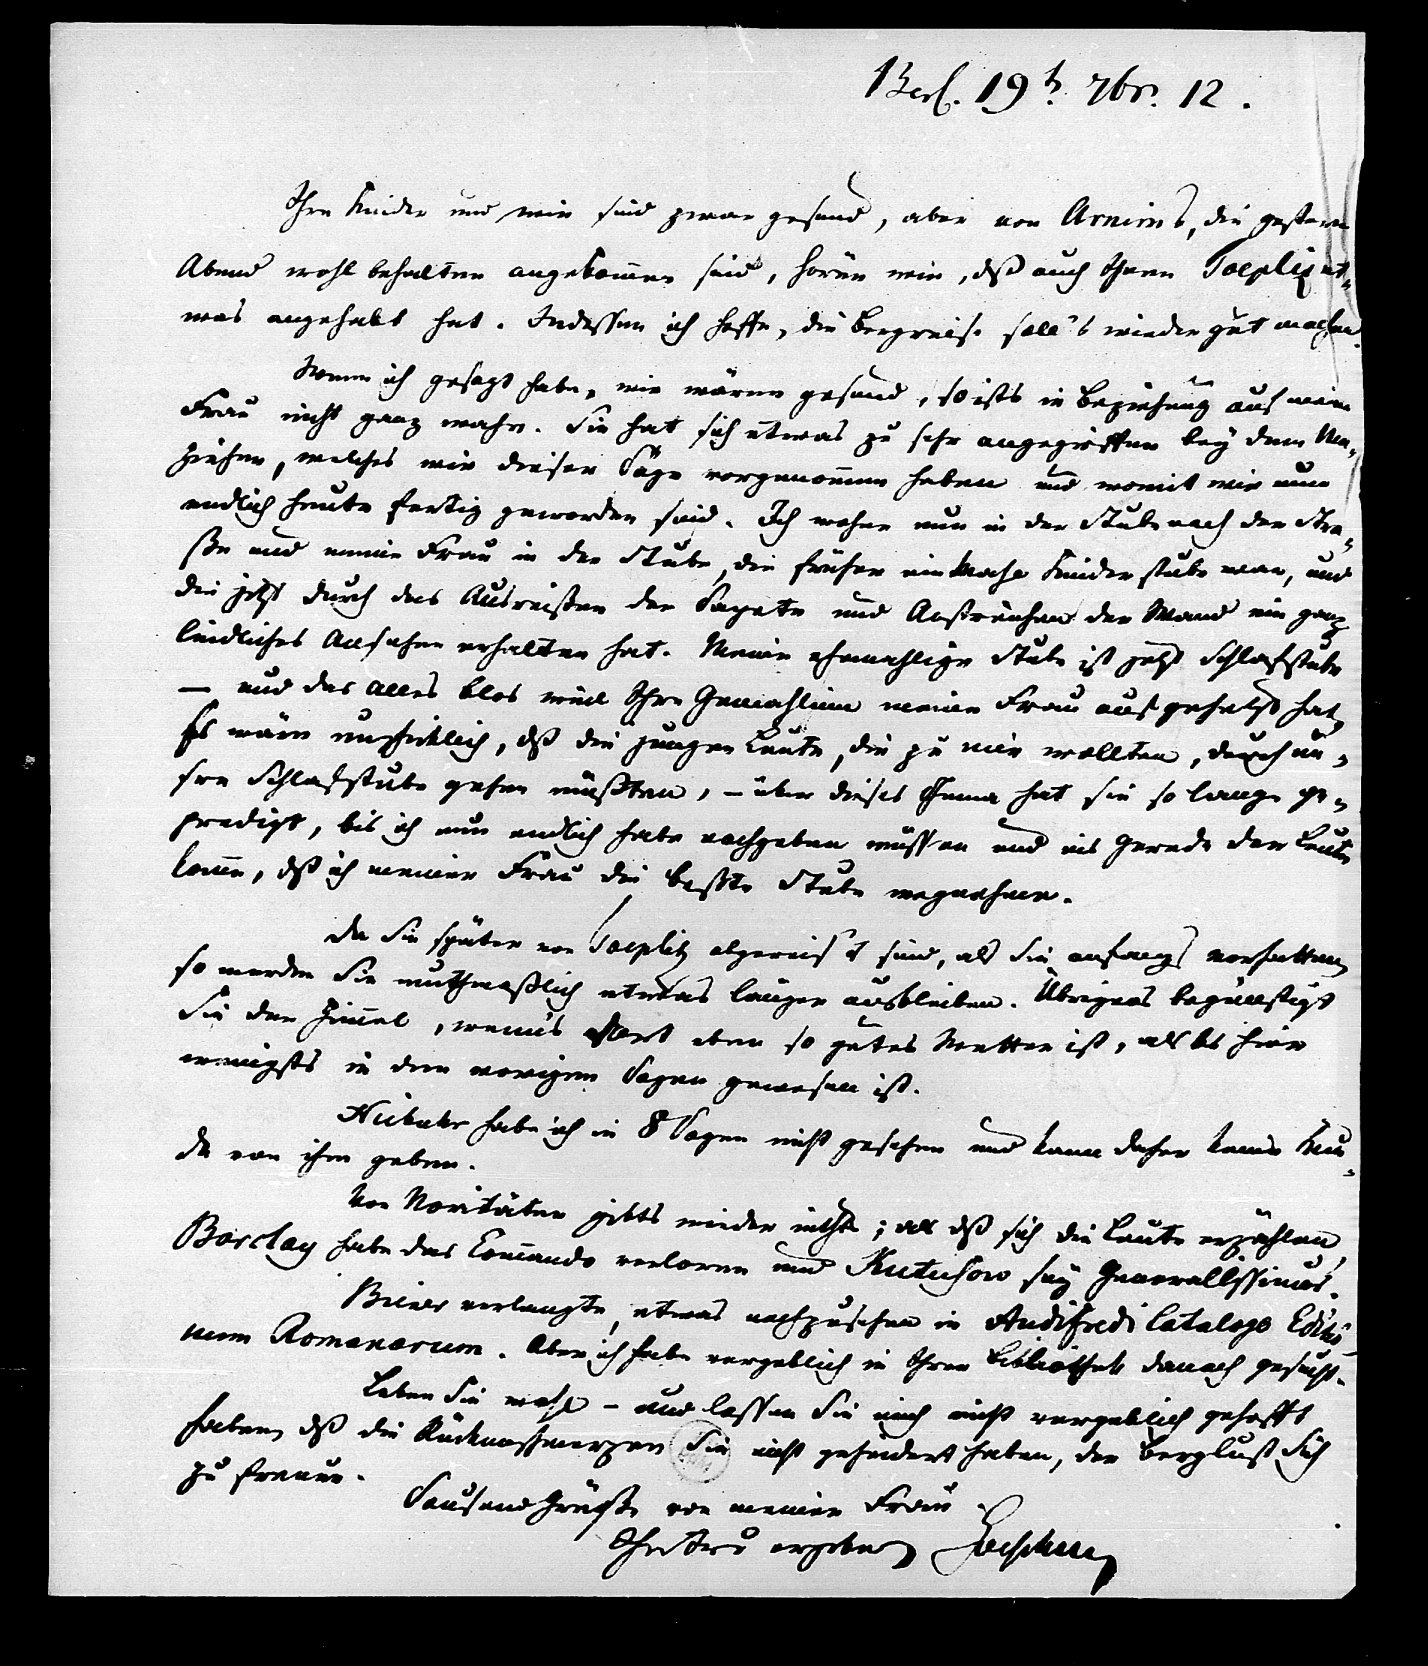 Berl. 19t. 7br. 12.
Ihre Kinder und wir sind zwar gesund, aber von Arnims, die gestern
Abend wohl behalten angekommen sind, hören wir, dß auch Ihnen Toepliz et-
was angehabt hat. Indessen ich hoffe, die Bergreise soll's wieder gut machen.
Wenn ich gesagt habe, wir wären gesund, so ists in Beziehung auf meine
Frau nicht ganz wahr. Sie hat sich etwas zu sehr angegriffen bey dem Um-
ziehen, welches wir dieser Tage vorgenommen haben und womit wir nun
endlich heute fertig geworden sind. Ich wohne nun in der Stube nach der Stra-
ße und meine Frau in der Stube, die früher eine Kinderstube war, und
die jetzt durch das Ausreißen der Tapete und Anstreichen der Wand ein ganz
leidliches Ansehen erhalten hat. Meine ehemahlige Stube ist jetzt Schlafstube
— und das alles blos weil Ihre Gemahlinn meine Frau aufgehetzt hat,
Es wäre unschicklich, dß die jungen Leute, die zu mir wollten, durch un-
sre Schlafstube gehen müßten, – über dieses Thema hat sie so lange ge-
predigt, bis ich nun endlich habe nachgeben müssen und ins Gerede der Leute
komme, dß ich meiner Frau die beßte Stube wegnehme.
Da Sie später von Toeplitz abgereis't sind, als Sie anfangs vorhatten,
so werden Sie muthmaßlich etwas länger ausbleiben. Übrigens begünstigt
Sie der Himmel, wenn's dort eben so gutes Wetter ist, als es hier
wenigsts in den vorigen Tagen gewesen ist.
Niebuhr habe ich in 8 Tagen nicht gesehen und kann daher keine Kun-
de von ihm geben.
Von Novitäten gibts wieder nichts; als dß sich die Leute erzählen,
Barclay habe das Commando verloren und Kutusow sey Generallssimus.
Biener verlangte, etwas nachzusehen in Audifredi Catalogo Editio-
num Romanarum. Aber ich habe vergeblich in Ihrer Bibliothek danach gesucht.
Leben Sie wohl – und lassen Sie mich nicht vergeblich gehofft
haben, dß die Rückenschmerzen Sie nicht gehindert haben, der Berglust Sich
zu freuen.
Tausend Grüße von meiner Frau.
Ihr treu ergebener Goeschen